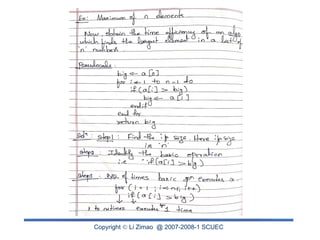 Ex: Maximum of n elements
Now, obtain the time efficiency of an algo
which finds the largest element in a list of
n numbers
Pseudocode:
big ← a[n]
for i ← 1 to n-1 do
if (a[i] > big)
big ← a[i]
endif
end for
return big
step1: Find the ip size. Here ip size
is 'n'
step2: Identify the basic operation
i.e "if (a[i] > big)
step3: No. of times basic opn executes =
for (i = 1 ; i <= n-1, i++)
if (a[i] > big)
↓ ↓ ↓
executes 1 time
Copyright © Li Zimao @ 2007-2008-1 SCUEC